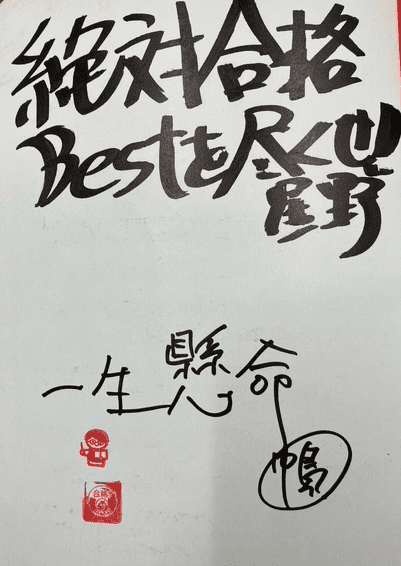 絶対合格
Bestを尽くせ
星野
一生懸命